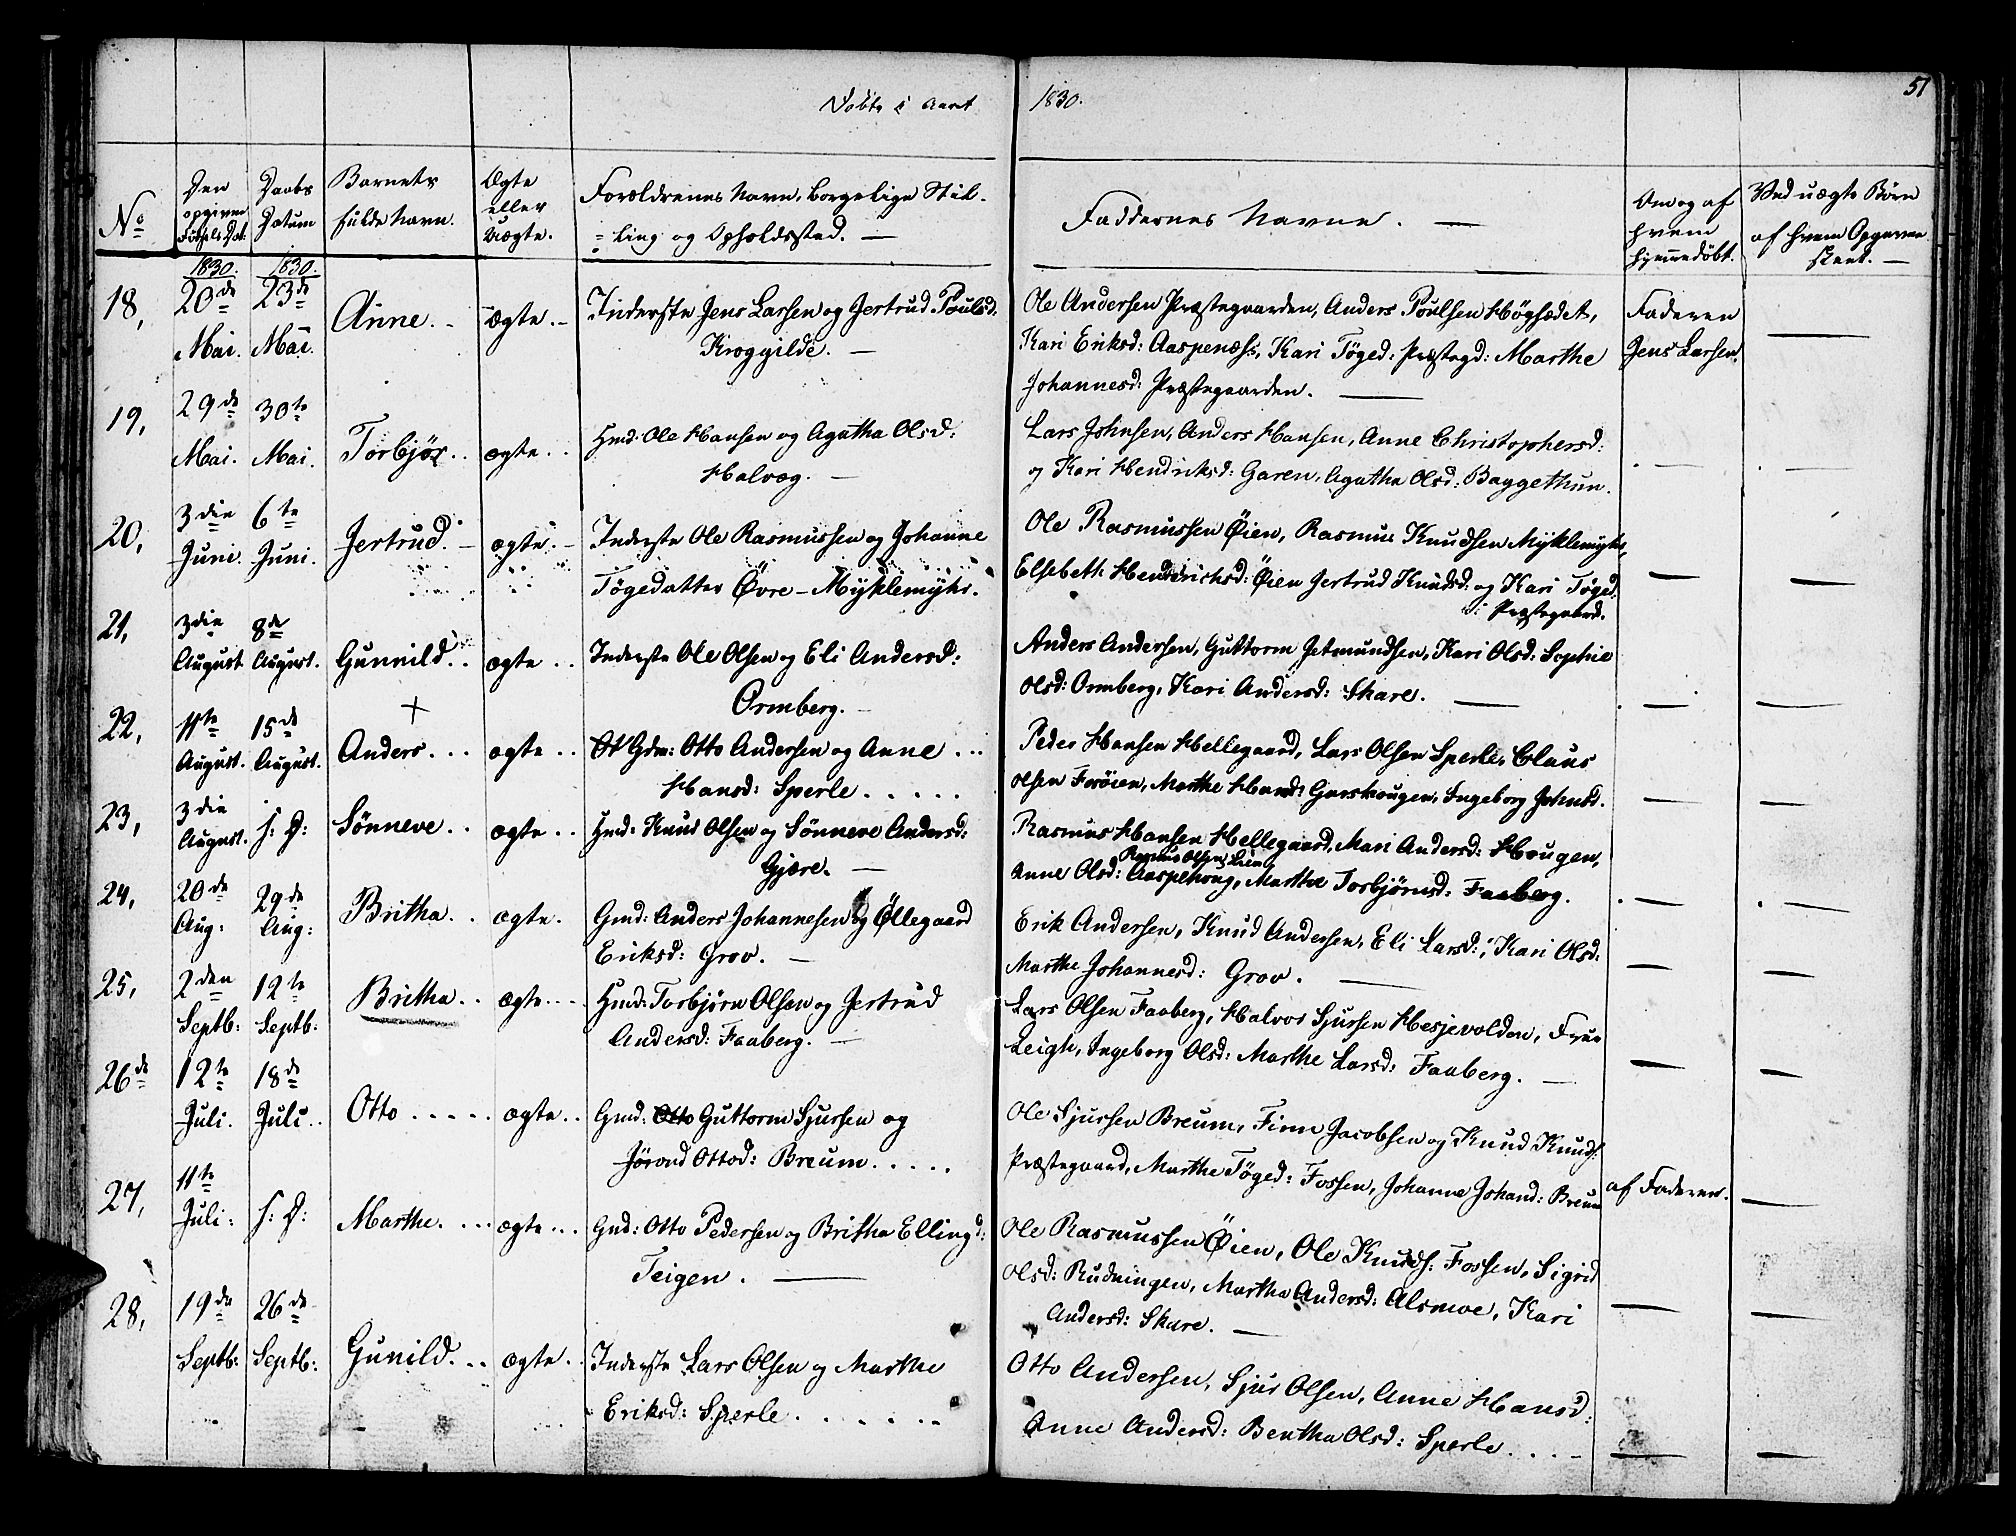 51
Døbte i Aaret 1830.
No
Den opgivne Fødsels Dat:
Daabs Datum
Barnets fulde Navn.
Ægte eller Uægte.
Forældrenes Navn, borgelige Stilling og Opholdssted. —
Faddernes Navne. —
Om og af hvem hjemmedøbt.
Ved uægte Børn af hvem Opgaven skeet. —
1830. 1830.
18, 20de Mai. 23de Mai. Anne. – ægte. – Inderste Jens Larsen og Jertrud Poulsd.
Kroggilde. —
Ole Andersen Præstegaarden, Anders Poulsen Høgsædet,
Kari Eriksd: Aaspenæss, Kari Tøged: Præstegd: Marthe
Johannesd: Præstegaarden. —
Faderen
Jens Larsen. —
19, 29de Mai. 30te Mai. Torbjør. . ægte. . Hmd: Ole Hansen og Agatha Olsd:
Halvæg. —
Lars Johnsen, Anders Hansen, Anne Christophersd:
og Kari Hendriksd: Garen, Agatha Olsd: Baggethun.
20, 3die Juni. 6te Juni. Jertrud. – ægte. – Inderste Ole Rasmussen og Johanne
Tøgedatter Øvre-Mÿklemÿhr.
Ole Rasmussen Øien, Rasmus Knudsen Mÿklemÿhr,
Elsebeth Hendrichsd: Øien Jertrud Knudsd: og Kari Tøged:
Præstegaard.
21, 3die August 8de August. Gunnild. . ægte . . Inderste Ole Olsen og Eli Andersd:
Ormberg. —
Anders Andersen, Guttorm Jetmundsen, Kari Olsd: Sophie
Olsd: Ormberg, Kari Andersd: Skare. —
22, 11te August. 15de August. + Anders. . . ægte . . Gdm: Otto Andersen og Anne . . .
Hansd: Sperle . . . . .
Peder Hansen Hellegaard, Lars Olsen Sperle, Claus
Olsen Forøien, Marthe Hansd: Garshougen, Ingeborg Johnsd.
23, 3die August. s: D: Sönneve . . ægte . . Hmd: Knud Olsen og Sönneve Andersd:
Gjære. —
Rasmus Hansen Hellegaard, Mari Andersd: Hougen,
Rasmus Olsen Lien
Anne Olsd: Aaspehoug, Marthe Torbjørnsd: Faaberg.
24, 20de Aug: 29de Aug: Britha. . ægte. Gmd: Anders Johannesen og Øllegaard
Eriksd: Grov. —
Erik Andersen, Knud Andersen, Eli Larsd:, Kari Olsd:
Marthe Johannesd: Grov. —
25, 2den Septb: 12te Septb: Britha . . ægte. . . . Hmd: Torbjörn Olsen og Jertrud
Andersd: Faaberg. —
Lars Olsen Faaberg, Halvor Sjursen Hesjevolden, Frue
Leigh, Ingeborg Olsd: Marthe Larsd: Faaberg. —
26de 12te Juli. 18de Juli. . Otto . . . . . ægte . . Gmd: Guttorm Sjursen og
Jörand Ottod: Breum. . . . .
Ole Sjursen Breum, Finne Jacobsen og Knud Knuds:
Præstegaard, Marthe Tøged: Fossen, Johanne Johand: Breum
af Faderen. —
27, 11te Juli: s: D: Marthe. . . . ægte . . . Gmd: Otto Pedersen og Britha Ellingd:
Teigen. —
Ole Rasmussen Øien, Ole Knuds: Fossen, Sigrid
Olsd: Rudningen, Martha Andersd: Alsmoe, Kari
Andersd: Skare. —
28, 19de Septb: 26de Septb: Gunild. . . ægte. . Inderste Lars Olsen og Marthe
Eriksd: Sperle. . . . . . .
Otto Andersen, Sjur Olsen, Anne Hansd:
Anne Andersd: Bentha Olsd: Sperle . . . .